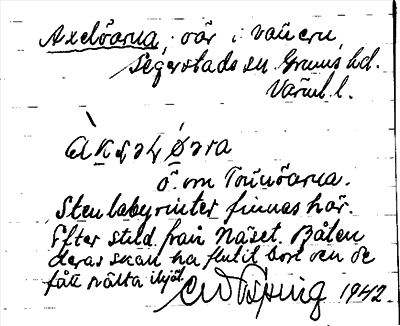 Axelöarna, öar i Vänern,
Segerstads sn Grums hd.
Värml l.
ö. om Tornöarna.
Stenlabyrinter finnas här.
Efter strid från Näset. Båten
deras skall ha flutit bort och de
fått svälta ihjäl.
1942